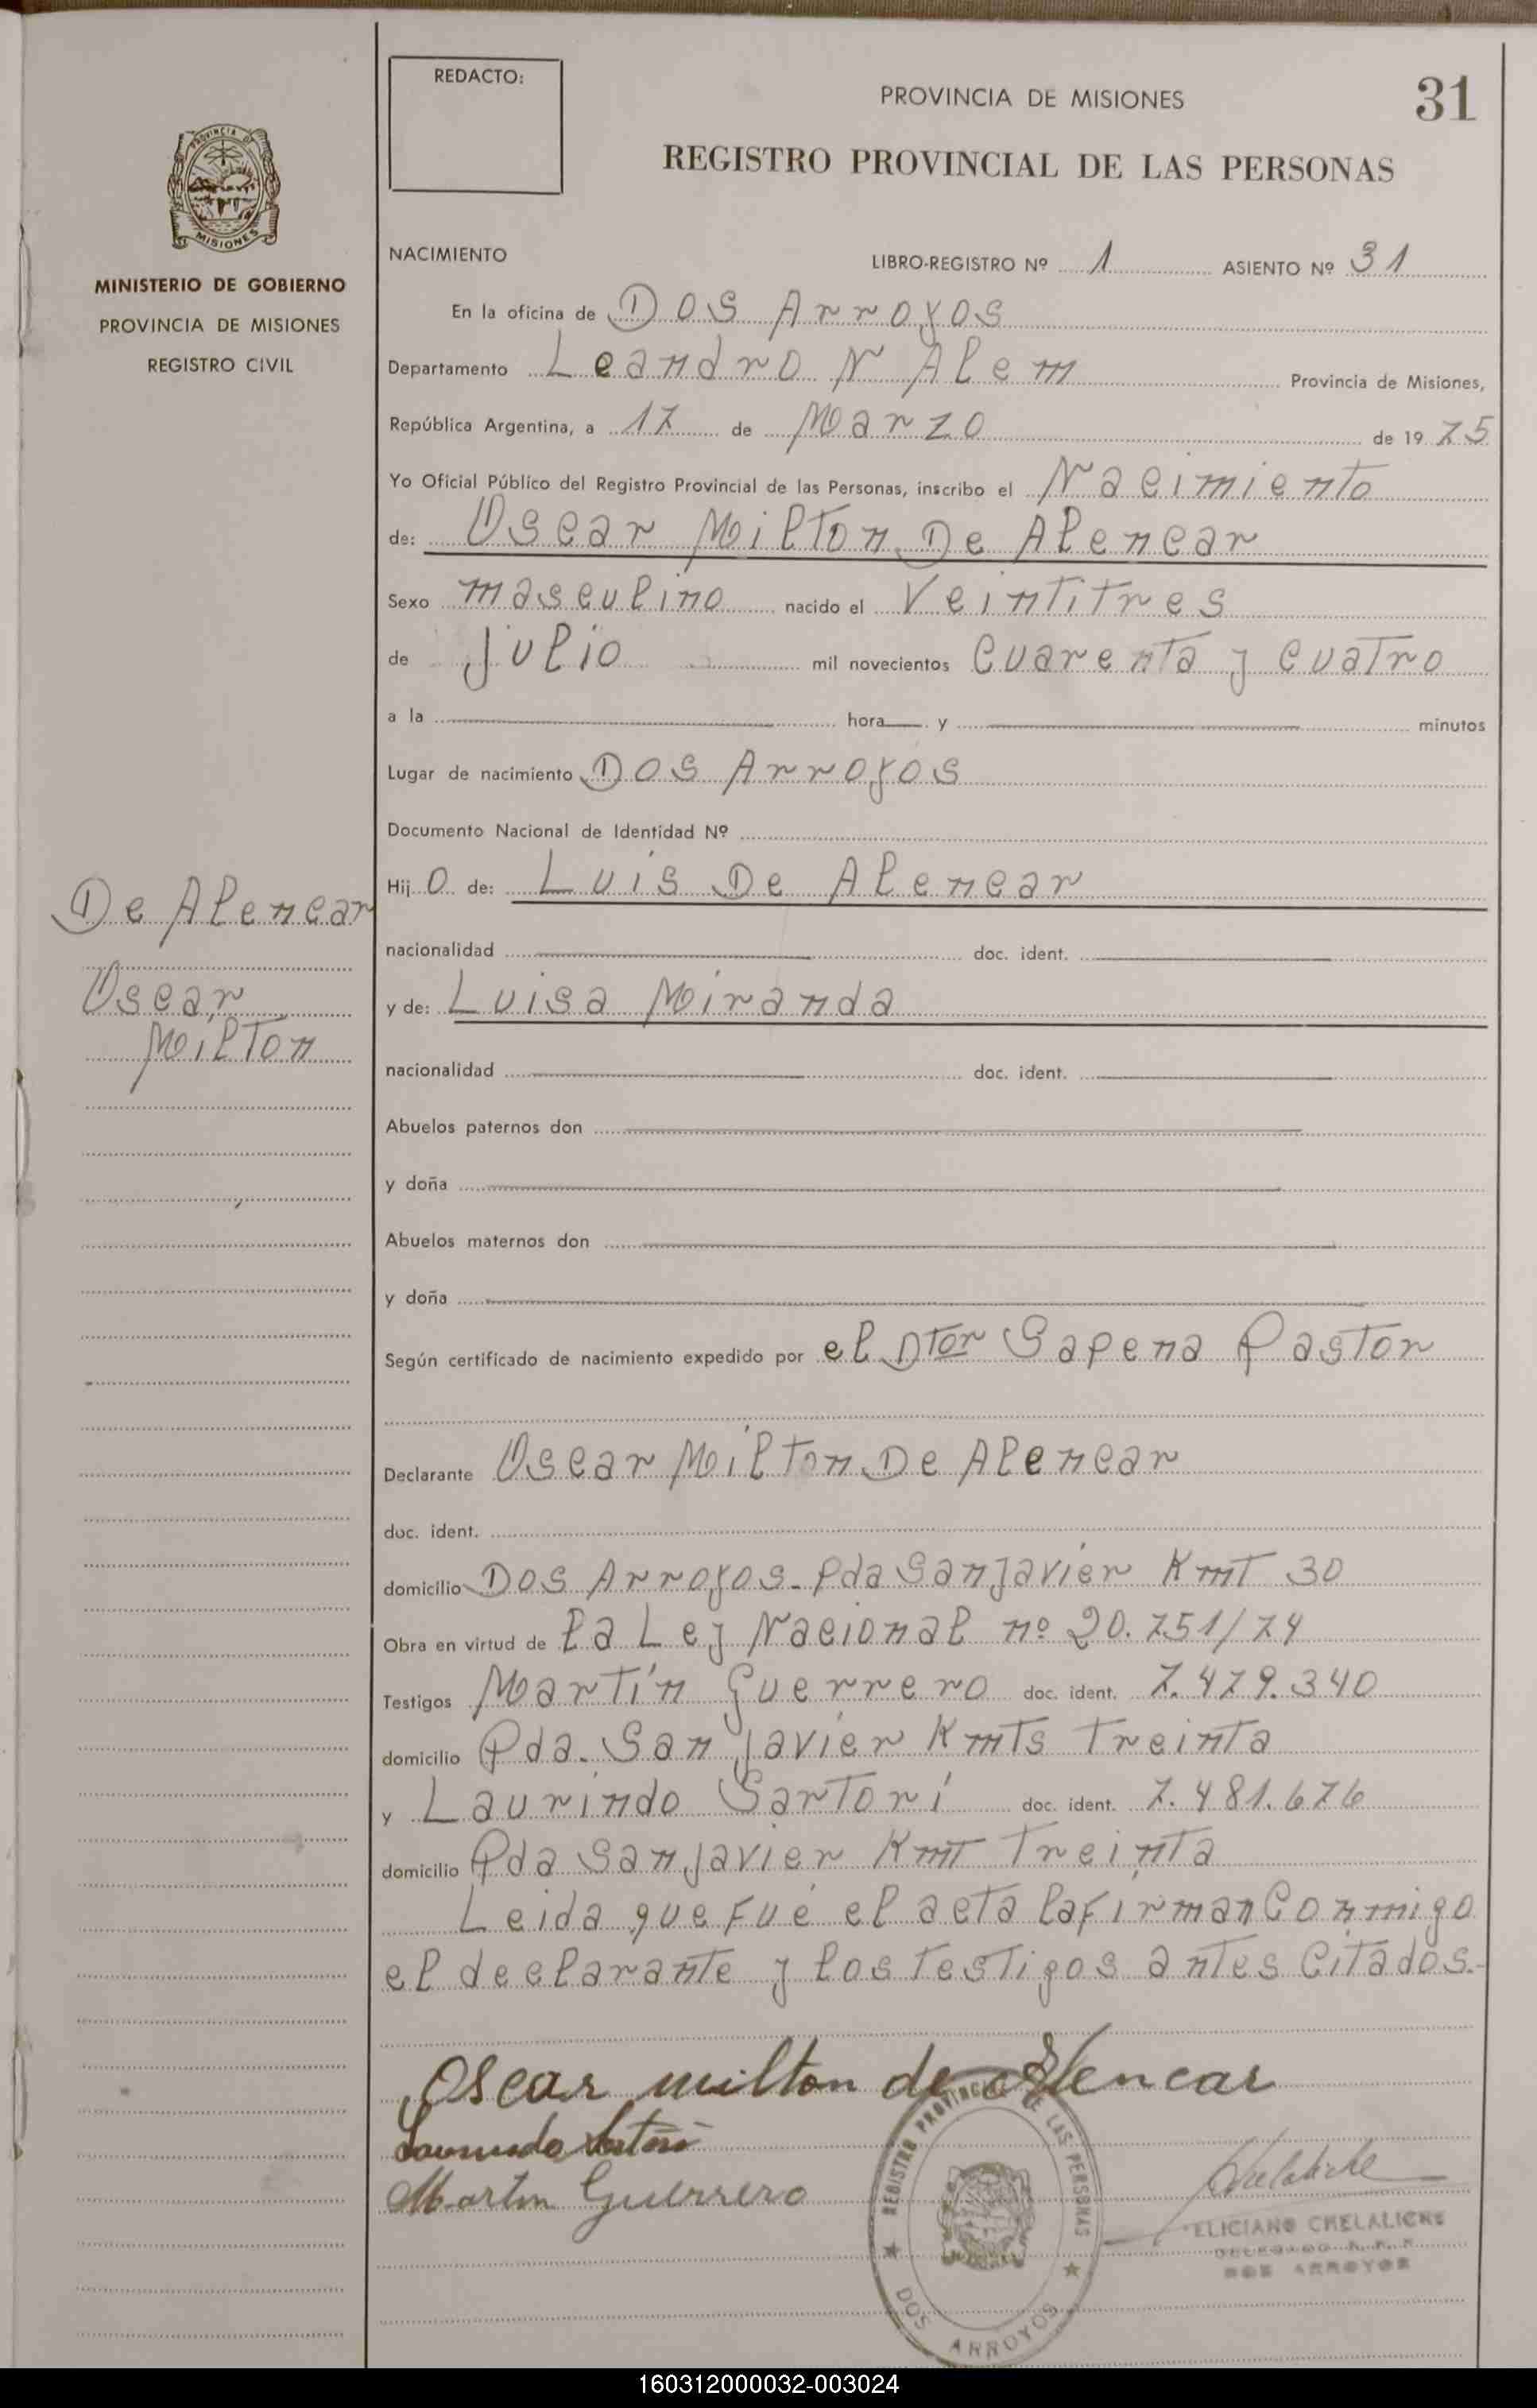 REDACTO:
PROVINCIA DE MISIONES
31
REGISTRO PROVINCIAL DE LAS PERSONAS
PROVINCIA DE
MISIONES
MINISTERIO DE GOBIERNO
PROVINCIA DE MISIONES
REGISTRO CIVIL
NACIMIENTO LIBRO-REGISTRO Nº 1 ASIENTO Nº 31
En la oficina de Dos Arroyos
Departamento Leandro N Alem Provincia de Misiones,
República Argentina, a 17 de Marzo de 1975
Yo Oficial Público del Registro Provincial de las Personas, inscribo el Nacimiento
de: Oscar Milton De Alencar
Sexo masculino nacido el Veintitres
de julio mil novecientos Cuarenta y Cuatro
a la hora y minutos
Lugar de nacimiento Dos Arroyos
Documento Nacional de Identidad Nº
Hijo de: Luis De Alencar
De Alencar
nacionalidad doc. ident.
Oscar
y de: Luisa Miranda
Milton
nacionalidad doc. ident.
Abuelos paternos don
y doña
Abuelos maternos don
y doña
Según certificado de nacimiento expedido por el Dtor Sapena Pastor
Declarante Oscar Milton De Alencar
doc. ident.
domicilio Dos Arroyos-Pda San Javier Kmt 30
Obra en virtud de la Ley Nacional nº 20.751/74
Testigos Martín Guerrero doc. ident. 7.479.340
domicilio Pda. San Javier Kmts Treinta
y Laurindo Sartori doc. ident. 7.481.676
domicilio Pda San Javier Kmt Treinta
Leida que fué el acta la firman Conmigo
el declarante y los testigos antes Citados.-
Oscar milton de Alencar
Laurindo Sartori
Martin Guerrero
REGISTRO PROVINCIAL DE LAS PERSONAS
DOS ARROYOS
Chelaliche
FELICIANO CHELALICHE
DELEGADO R. P. P.
DOS ARROYOS
160312000032-003024